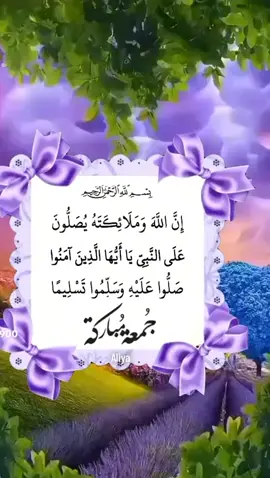 بسم الله الرحمن الرحيم
إِنَّ اللَّهَ وَمَلَائِكَتَهُ يُصَلُّونَ
عَلَى النَّبِيِّ يَا أَيُّهَا الَّذِينَ آمَنُوا
صَلُّوا عَلَيْهِ وَسَلِّمُوا تَسْلِيمًا
جمعة مباركة
Aliya